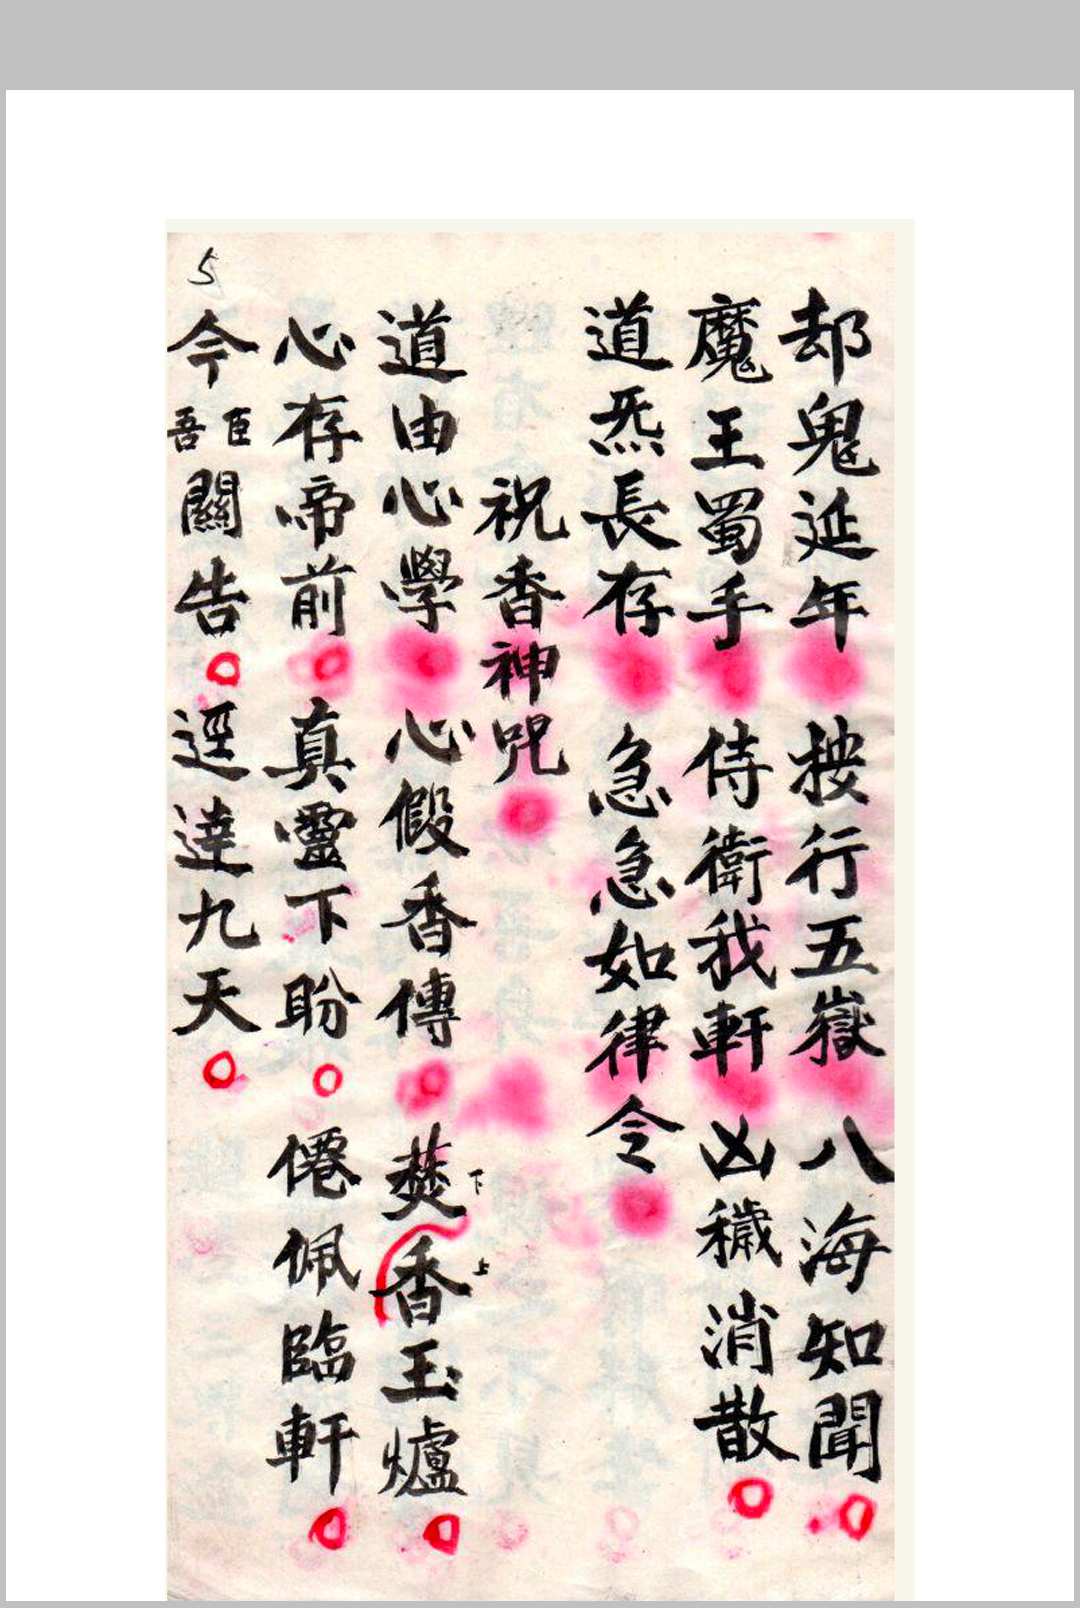 却鬼延年 按行五嶽 八海知聞
魔王蜀手 侍衛我軒 凶穢消散
道炁長存 急急如律令
祝香神咒
道由心學 心假香傳 焚下香上玉爐
心存帝前 真靈下盼 僊佩臨軒
今臣吾關告 逕達九天
5